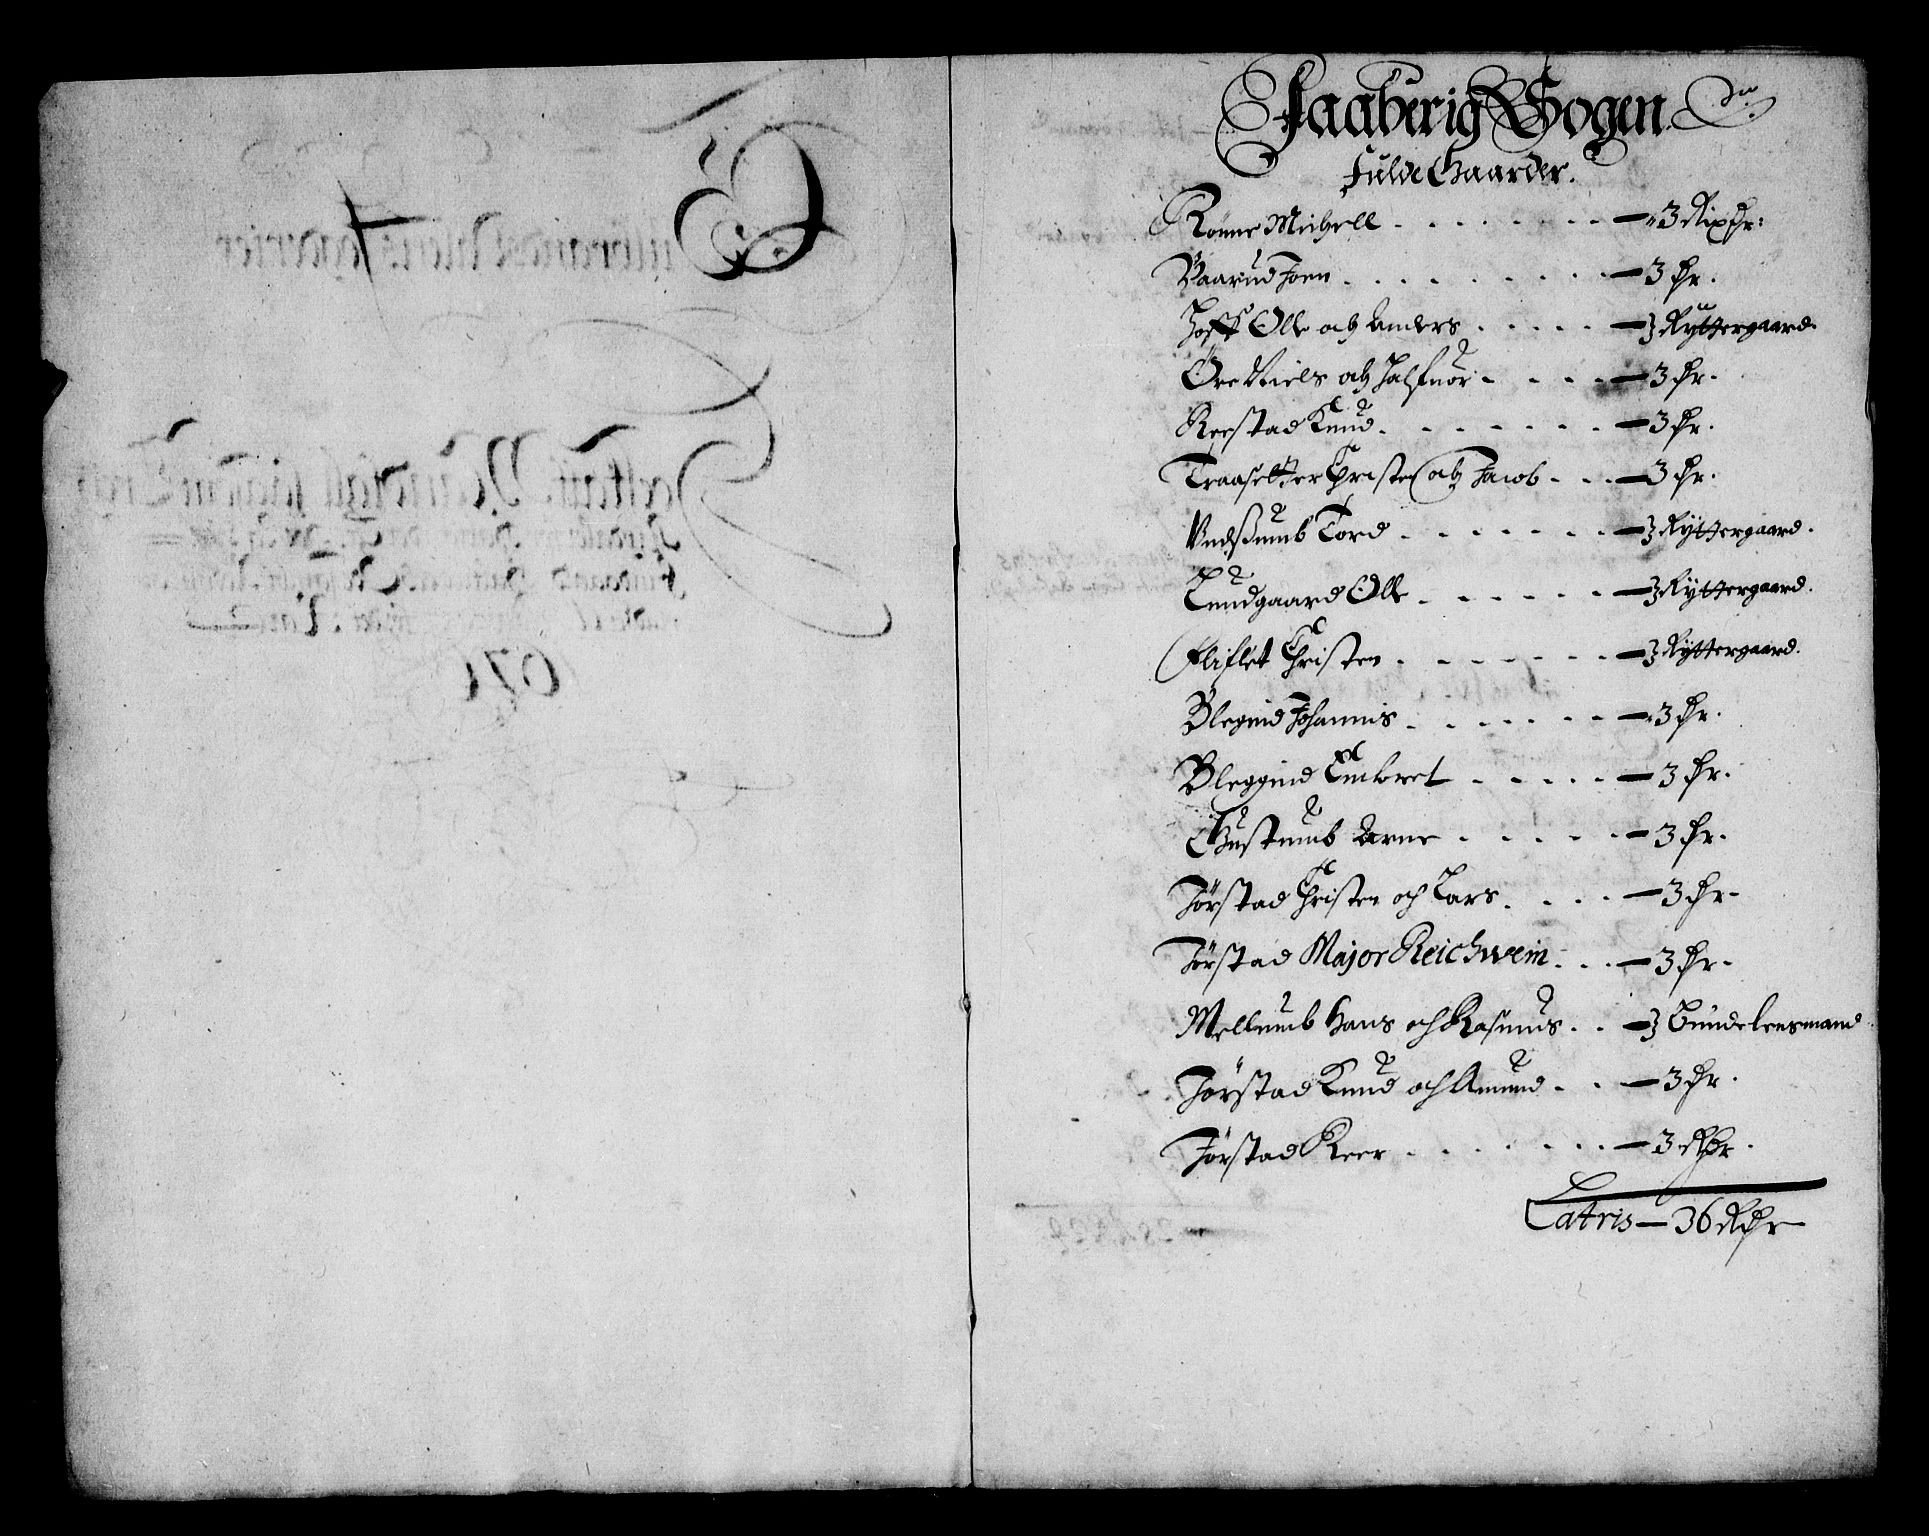 Faaberig Sogen
Fulde Gaarder.
Rönne Michell . . . . . . — 3 Rixdr:
Baarud Joen . . . . . . — 3 dr.
Joff Olle och Anders . . . . . — 3 Ryttergaard.
Öre Niels och Halfuor . . . . — 3 dr.
Reestad Knud . . . . . . — 3 dr.
Traasetter Christen och Jacob . . . — 3 dr.
Vndßumb Tord . . . . . . — 3 Ryttergaard.
Lundgaard Olle . . . . . . — 3 Ryttergaard.
Fliflet Christen . . . . . . — 3 Ryttergaard.
Blegind Johannis . . . . . . — 3 dr.
Bleggind Embret . . . . . — 3 dr.
Gustumb Arne . . . . . — 3 dr.
Jörstad Christen och Lars . . . . — 3 dr.
Jörstad Major Reichwein . . . — 3 dr.
Mellumb Hans och Rasmus . . — 3 Bundelensmand
Jörstad Knud och Amund . . . — 3 dr.
Jörstad Peer . . . . . . — 3 Rdr.
Latris — 36 Rdr